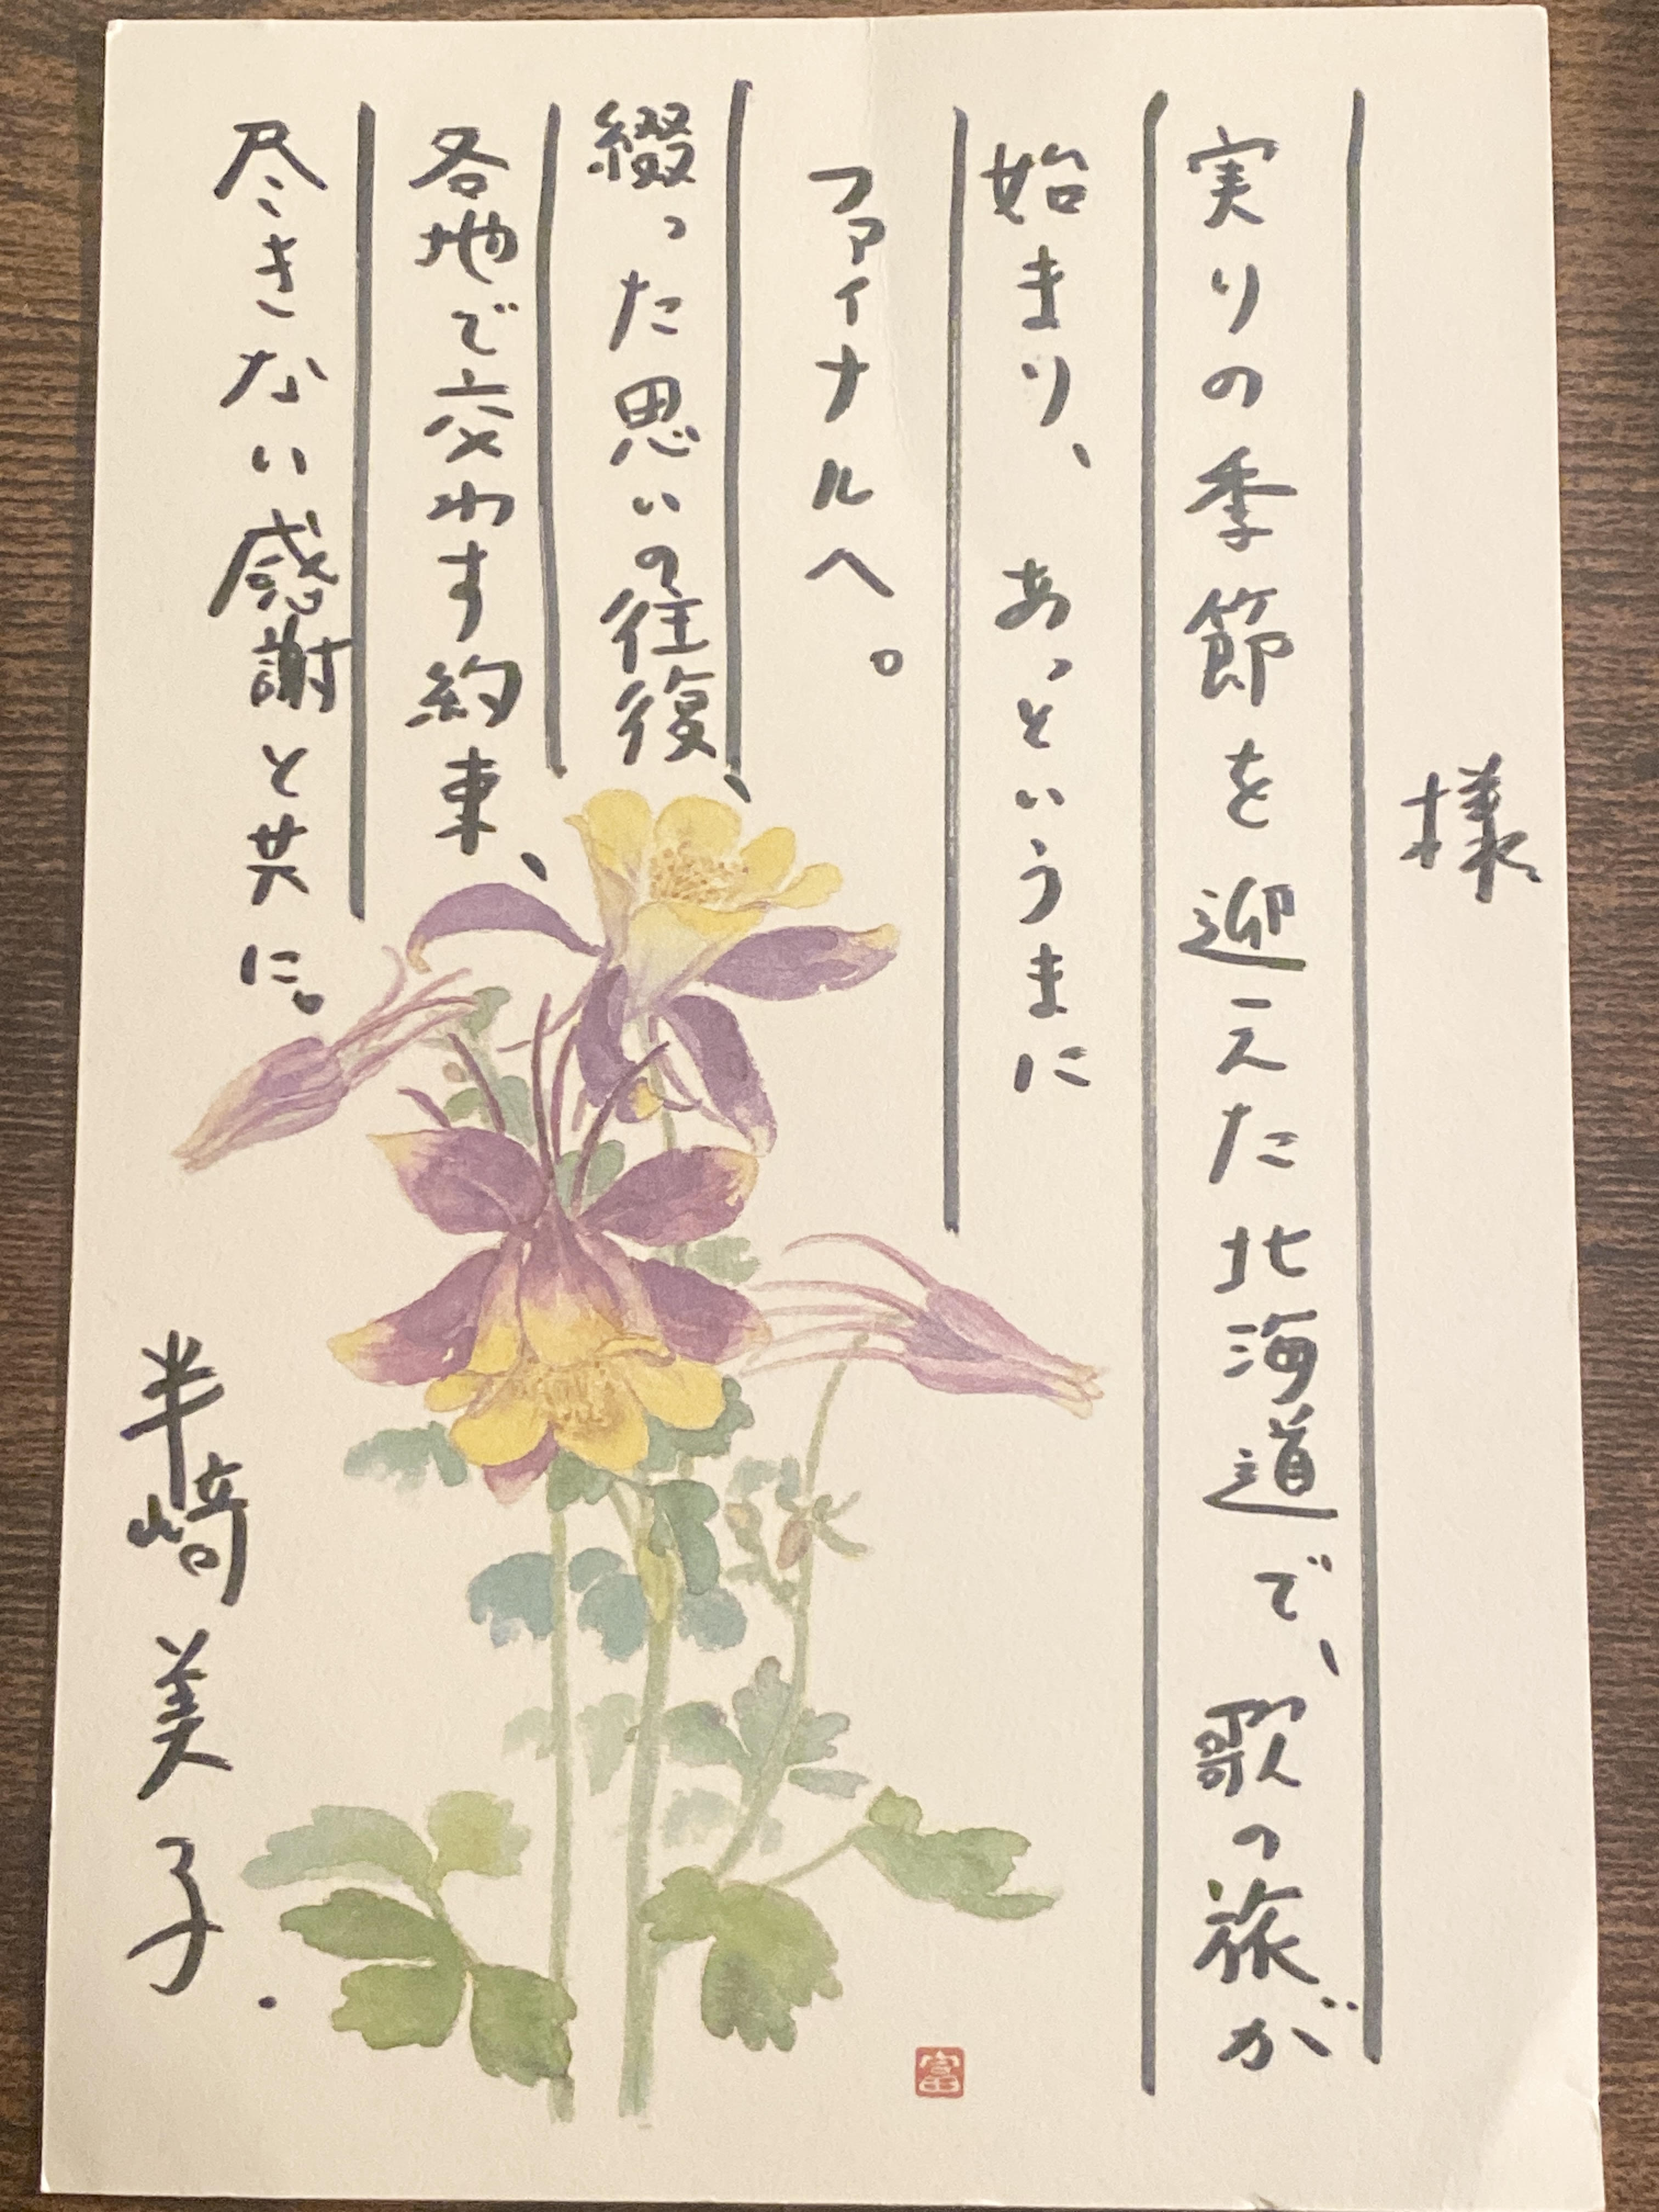 様
実りの季節を迎えた北海道で、歌の旅が
始まり、あっというまに
ファイナルへ。
綴った思いの往復、
各地で交わす約束、
尽きない感謝と共に。
半崎美子.
富